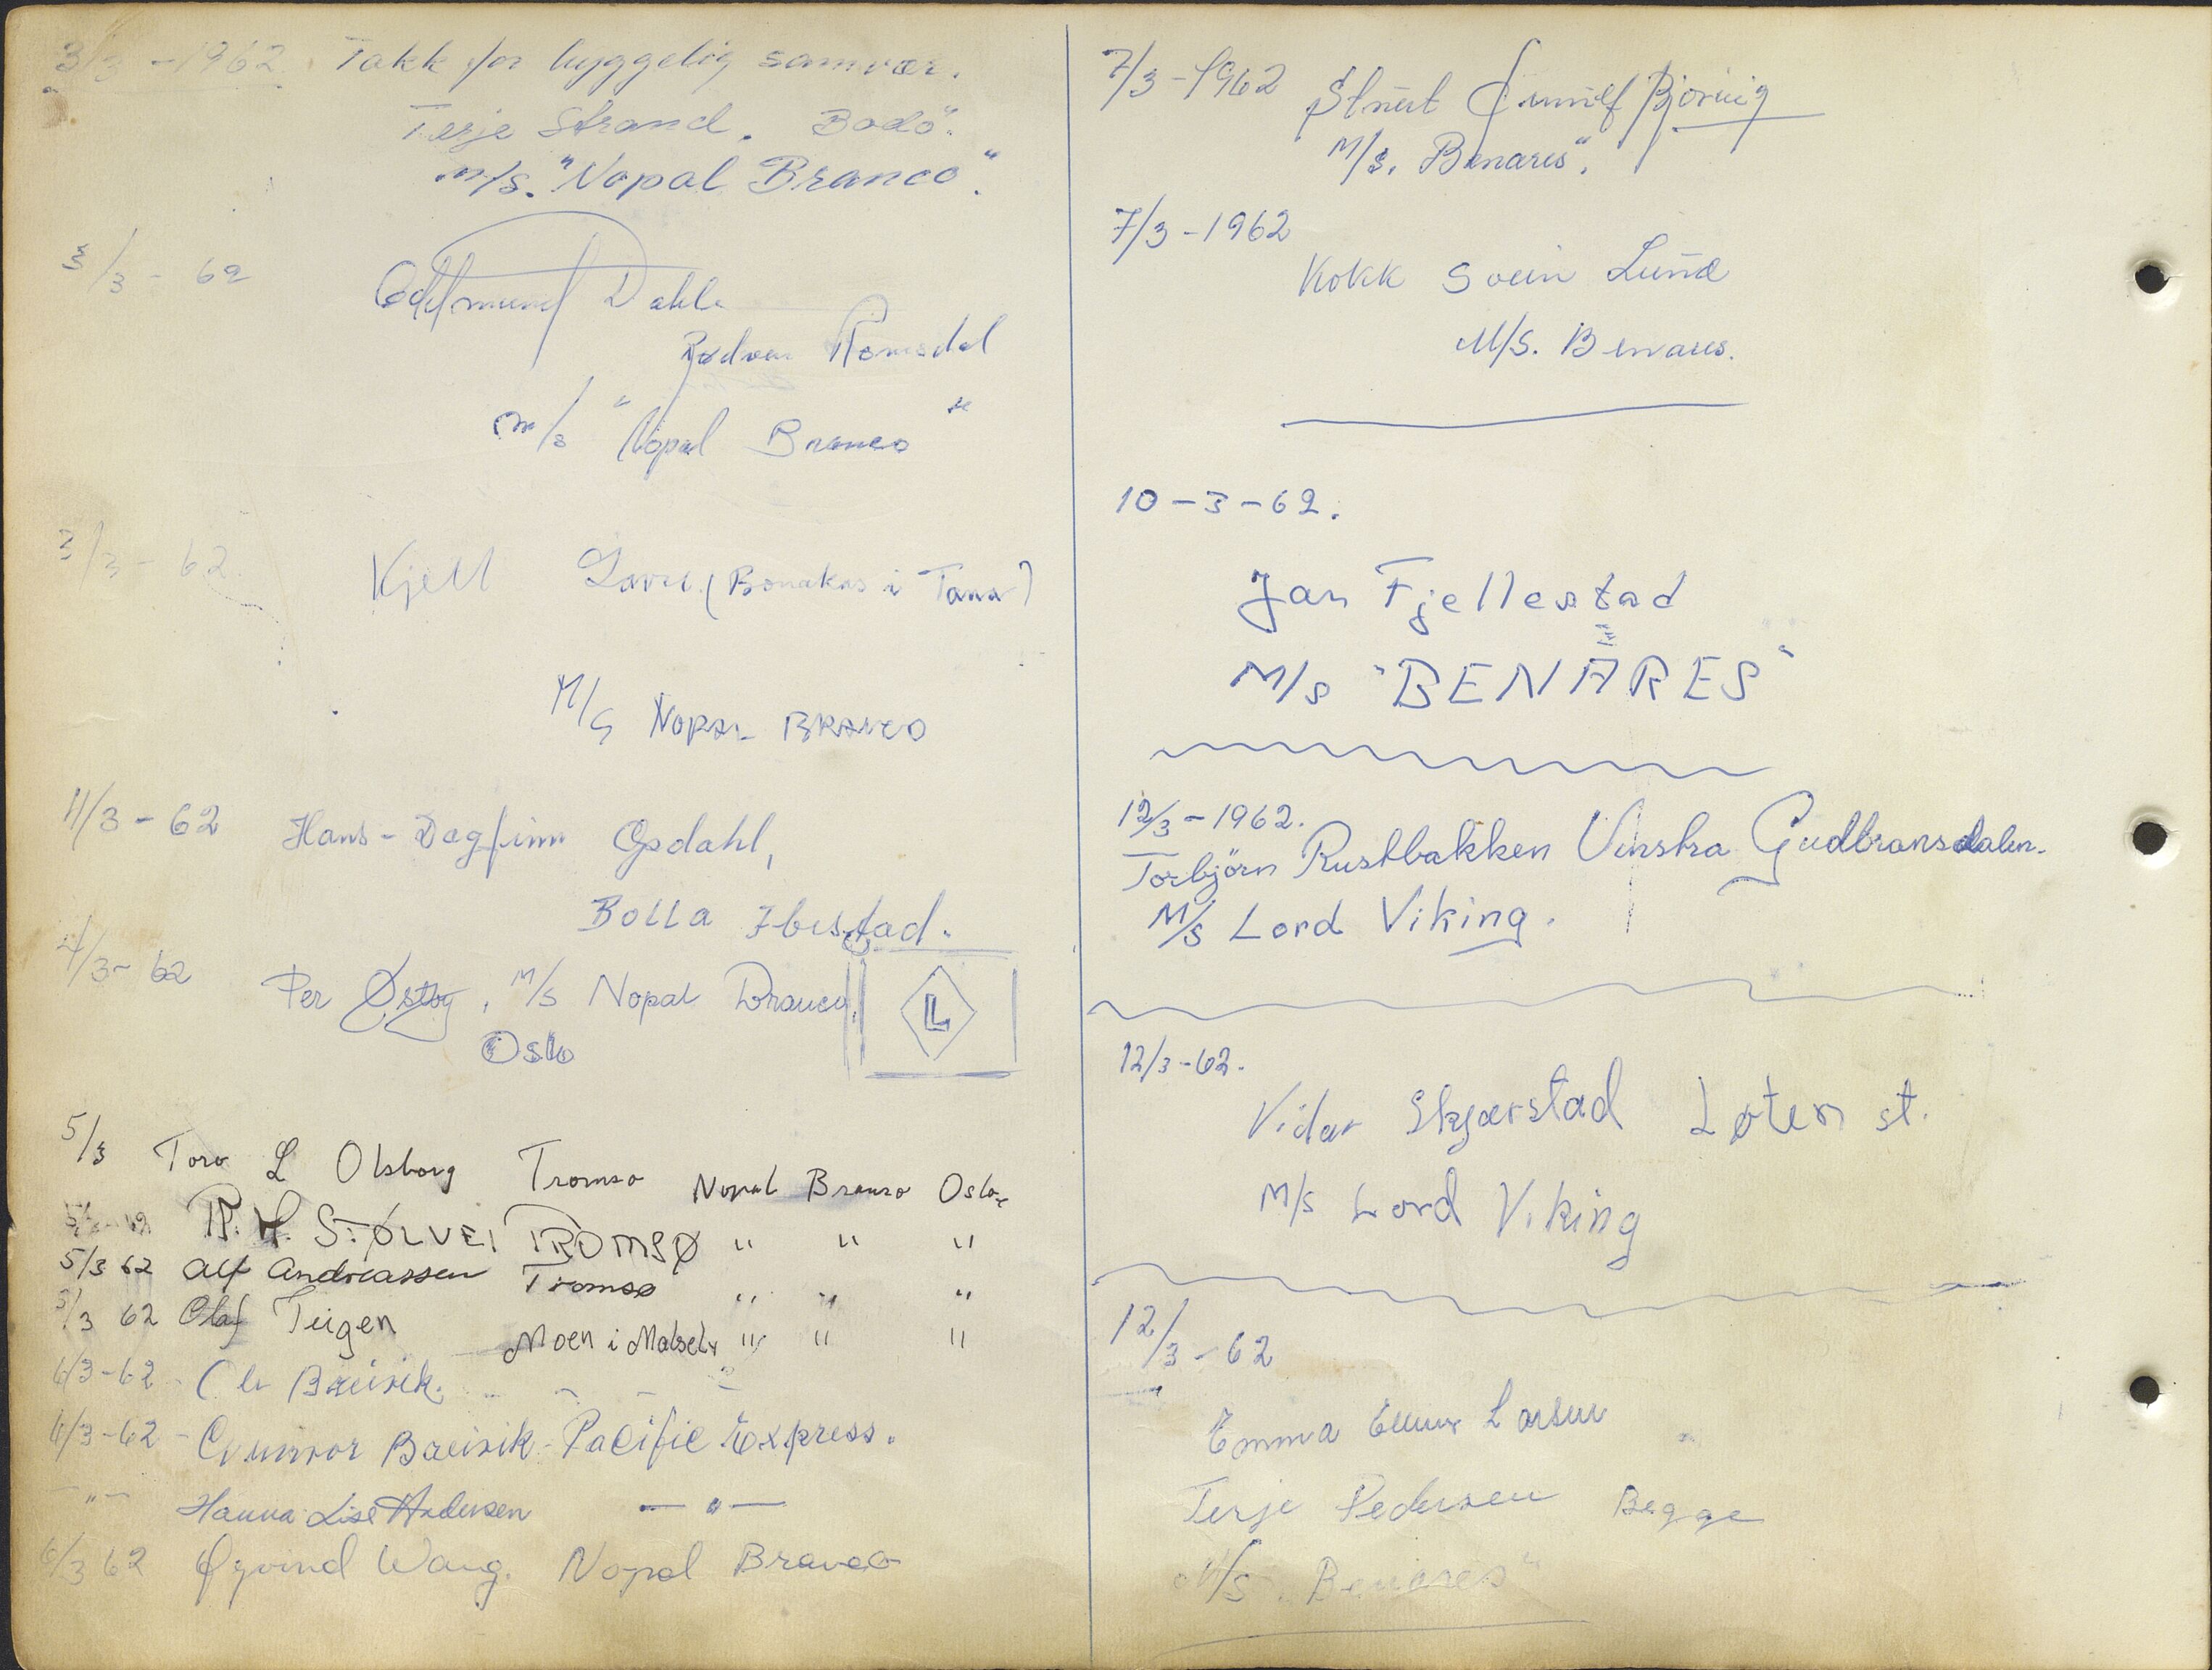 3/3 - 1962. Takk for hyggelig samvær.
Terje Strand. Bodö.
m/s. "Nopal Branco".
3/3 - 62
Oddmund Dahle
Rødven Romsdal
m/s "Nopal Branco"
3/3 - 62 Kjell (Bonakas i Tana)
M/S Nopal Branco
4/3 - 62 Hans-Dagfinn Opdahl,
Bolla Ibestad.
4/3 - 62
Per, M/S Nopal Branco,
Oslo
L
5/3 Tore L Olsborg Tromsø Nopal Branco Oslo
R. H. STØLVEI TROMSØ " " "
5/3 62 Alf Andreassen Tromsø " " "
5/3 62 Olaf Teigen Moen i Målselv " " "
6/3-62 - Breivik.
6/3-62 - Gunvor Breivik - Pacific Express.
- " - Hanna Lise Andersen - " -
6/3 62 Øyvind Wang. Nopal Branco
7/3 - 1962 Bjørvig
M/S. Benares".
7/3 - 1962
Kokk Svein Lund
M/S. Benares.
10 - 3 - 62.
Jan Fjellestad
M/S "BENARES"
12/3 - 1962.
Torbjörn Rustbakken Vinstra Gudbransdalen.
M/S Lord Viking.
12/3 - 62.
Vidar Skjærstad Løten st.
M/S Lord Viking
12/3 - 62
Emma Larsen
Terje Pedersen Begge
M/S. Benares"